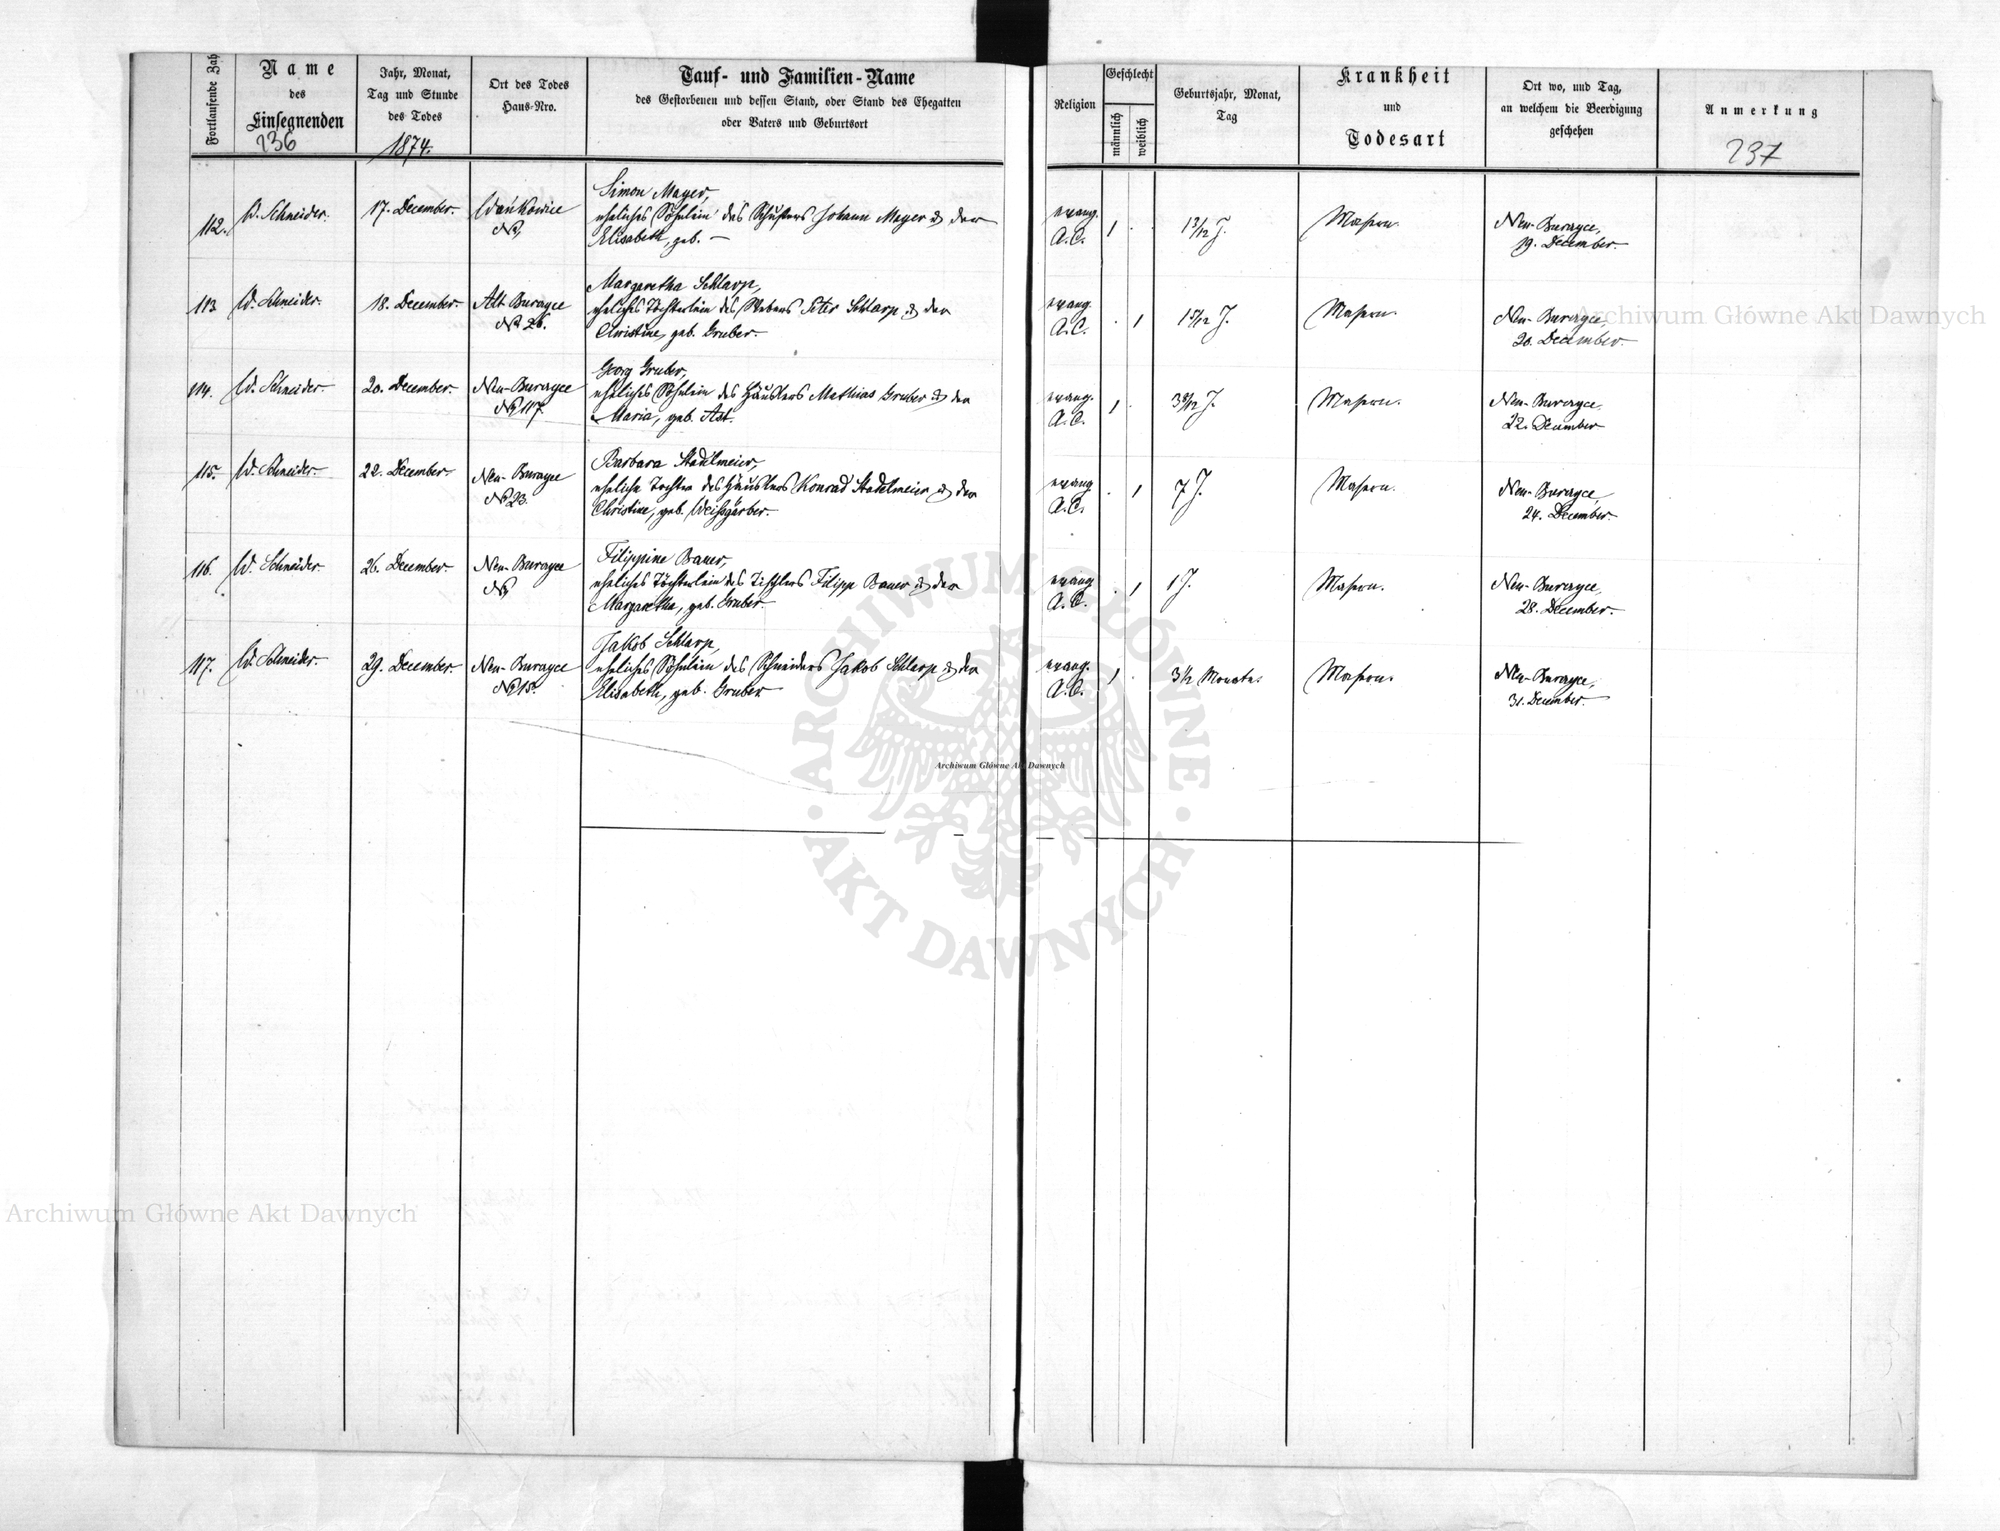 Fortlaufende Zah
Name
des
Einsegnenden
236
Jahr, Monat,
Tag und Stunde
des Todes
1874.
Ort des Todes
Haus-Nro.
Tauf- und Familien-Name
des Gestorbenen und dessen Stand, oder Stand des Ehegatten
oder Vaters und Geburtsort
Religion
Geschlecht
männlich
weiblich
Geburtsjahr, Monat,
Tag
Krankheit
und
Todesart
Ort wo, und Tag,
an welchem die Beerdigung
geschehen
Anmerkung
237
112.
W. Schneider.
17. December.
Wańkowice
No,
Simon Mayer,
eheliches Söhnlein des Schusters Johann Mayer & der
Elisabeth, geb. —
evang.
A. C.
1
.
1 3/12 J.
Masern.
Neu-Burczyce,
19. December.
113
W. Schneider.
18. December.
Alt Burczyce
No 26.
Margaretha Schlarp,
eheliches Töchterlein des Webers Peter Schlarp & der
Christine, geb. Gruber.
evang.
A. C.
.
1
1 5/12 J.
Masern.
Neu-Burczyce,
20. December.
114.
W. Schneider.
20. December.
Neu-Burczyce
No 117.
Georg Gruber,
eheliches Söhnlein des Häuslers Mathias Gruber & der
Maria, geb. Ast.
evang.
A. C.
1
.
3 8/12 J.
Masern.
Neu-Burczyce,
22. December
115.
W. Schneider.
22. December.
Neu-Burczyce
No 23.
Barbara Stadelmeier,
eheliche Tochter des Häuslers Konrad Stadelmeier & der
Christine, geb. Weissgärber.
evang
A. C.
.
1
7 J.
Masern.
Neu-Burczyce,
24. December.
116.
W. Schneider.
26. December.
Neu-Burczyce
No
Filippine Bauer,
eheliches Töchterlein des Tischlers Filipp Bauer & der
Margaretha, geb. Gruber.
evang
A. C.
.
1
1 J.
Masern.
Neu-Burczyce,
28. December.
117.
W. Schneider.
29. December.
Neu-Burczyce
No 15.
Jakob Schlarp,
eheliches Söhnlein des Schneiders Jakob Schlarp & der
Elisabeth, geb. Gruber
evang.
A. C.
1
.
3 1/2 Monate.
Masern.
Neu-Burczyce,
31. December.
Archiwum Główne Akt Dawnych
ARCHIWUM GŁÓWNE
AKT DAWNYCH
Archiwum Główne Akt Dawnych
Archiwum Główne Akt Dawnych